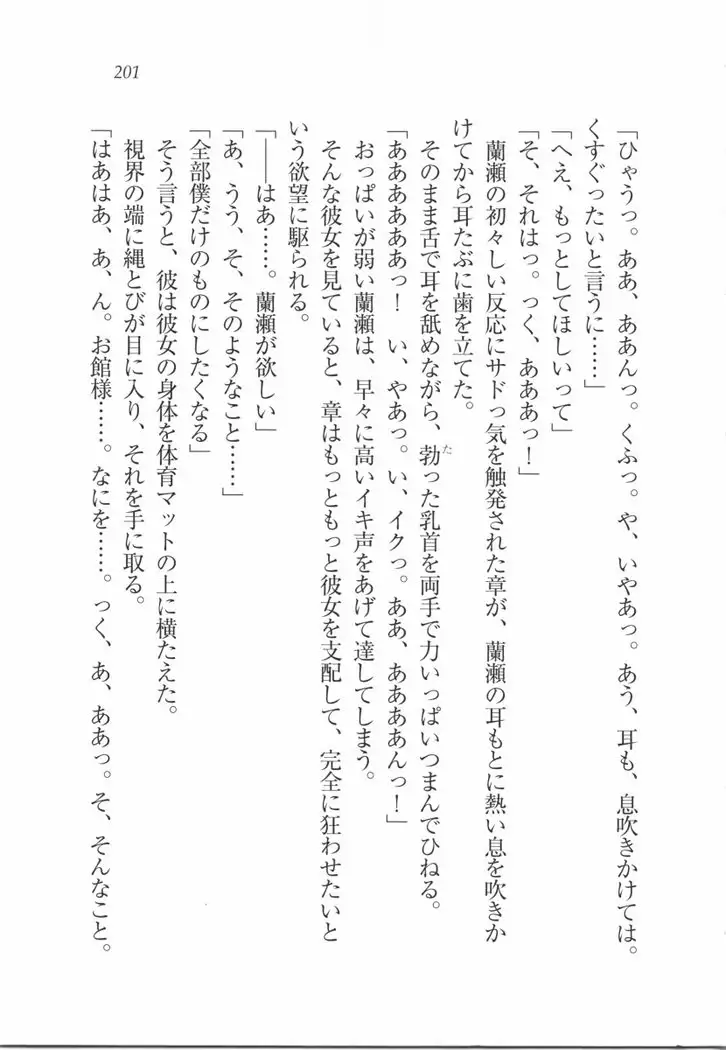 201
「ひゃうっ。ああ、ああんっ。くふっ。や、いやあっ。あう、耳も、息吹きかけては。
くすぐったいと言うに……」
「へえ、もっとしてほしいって」
「そ、それはっ。っく、あああっ！」
蘭瀬の初々しい反応にサドっ気を触発された章が、蘭瀬の耳もとに熱い息を吹きか
けてから耳たぶに歯を立てた。
そのまま舌で耳を舐めながら、勃った乳首を両手で力いっぱいつまんでひねる。
「ああああああっ！　い、やあっ。い、イクっ。ああ、ああああんっ！」
おっぱいが弱い蘭瀬は、早々に高いイキ声をあげて達してしまう。
そんな彼女を見ていると、章はもっともっと彼女を支配して、完全に狂わせたいと
いう欲望に駆られる。
「――はあ……。蘭瀬が欲しい」
「あ、うう、そ、そのようなこと……」
「全部僕だけのものにしたくなる」
そう言うと、彼は彼女の身体を体育マットの上に横たえた。
視界の端に縄とびが目に入り、それを手に取る。
「はあはあ、あ、ん。お館様……。なにを……。っく、あ、ああっ。そ、そんなこと。